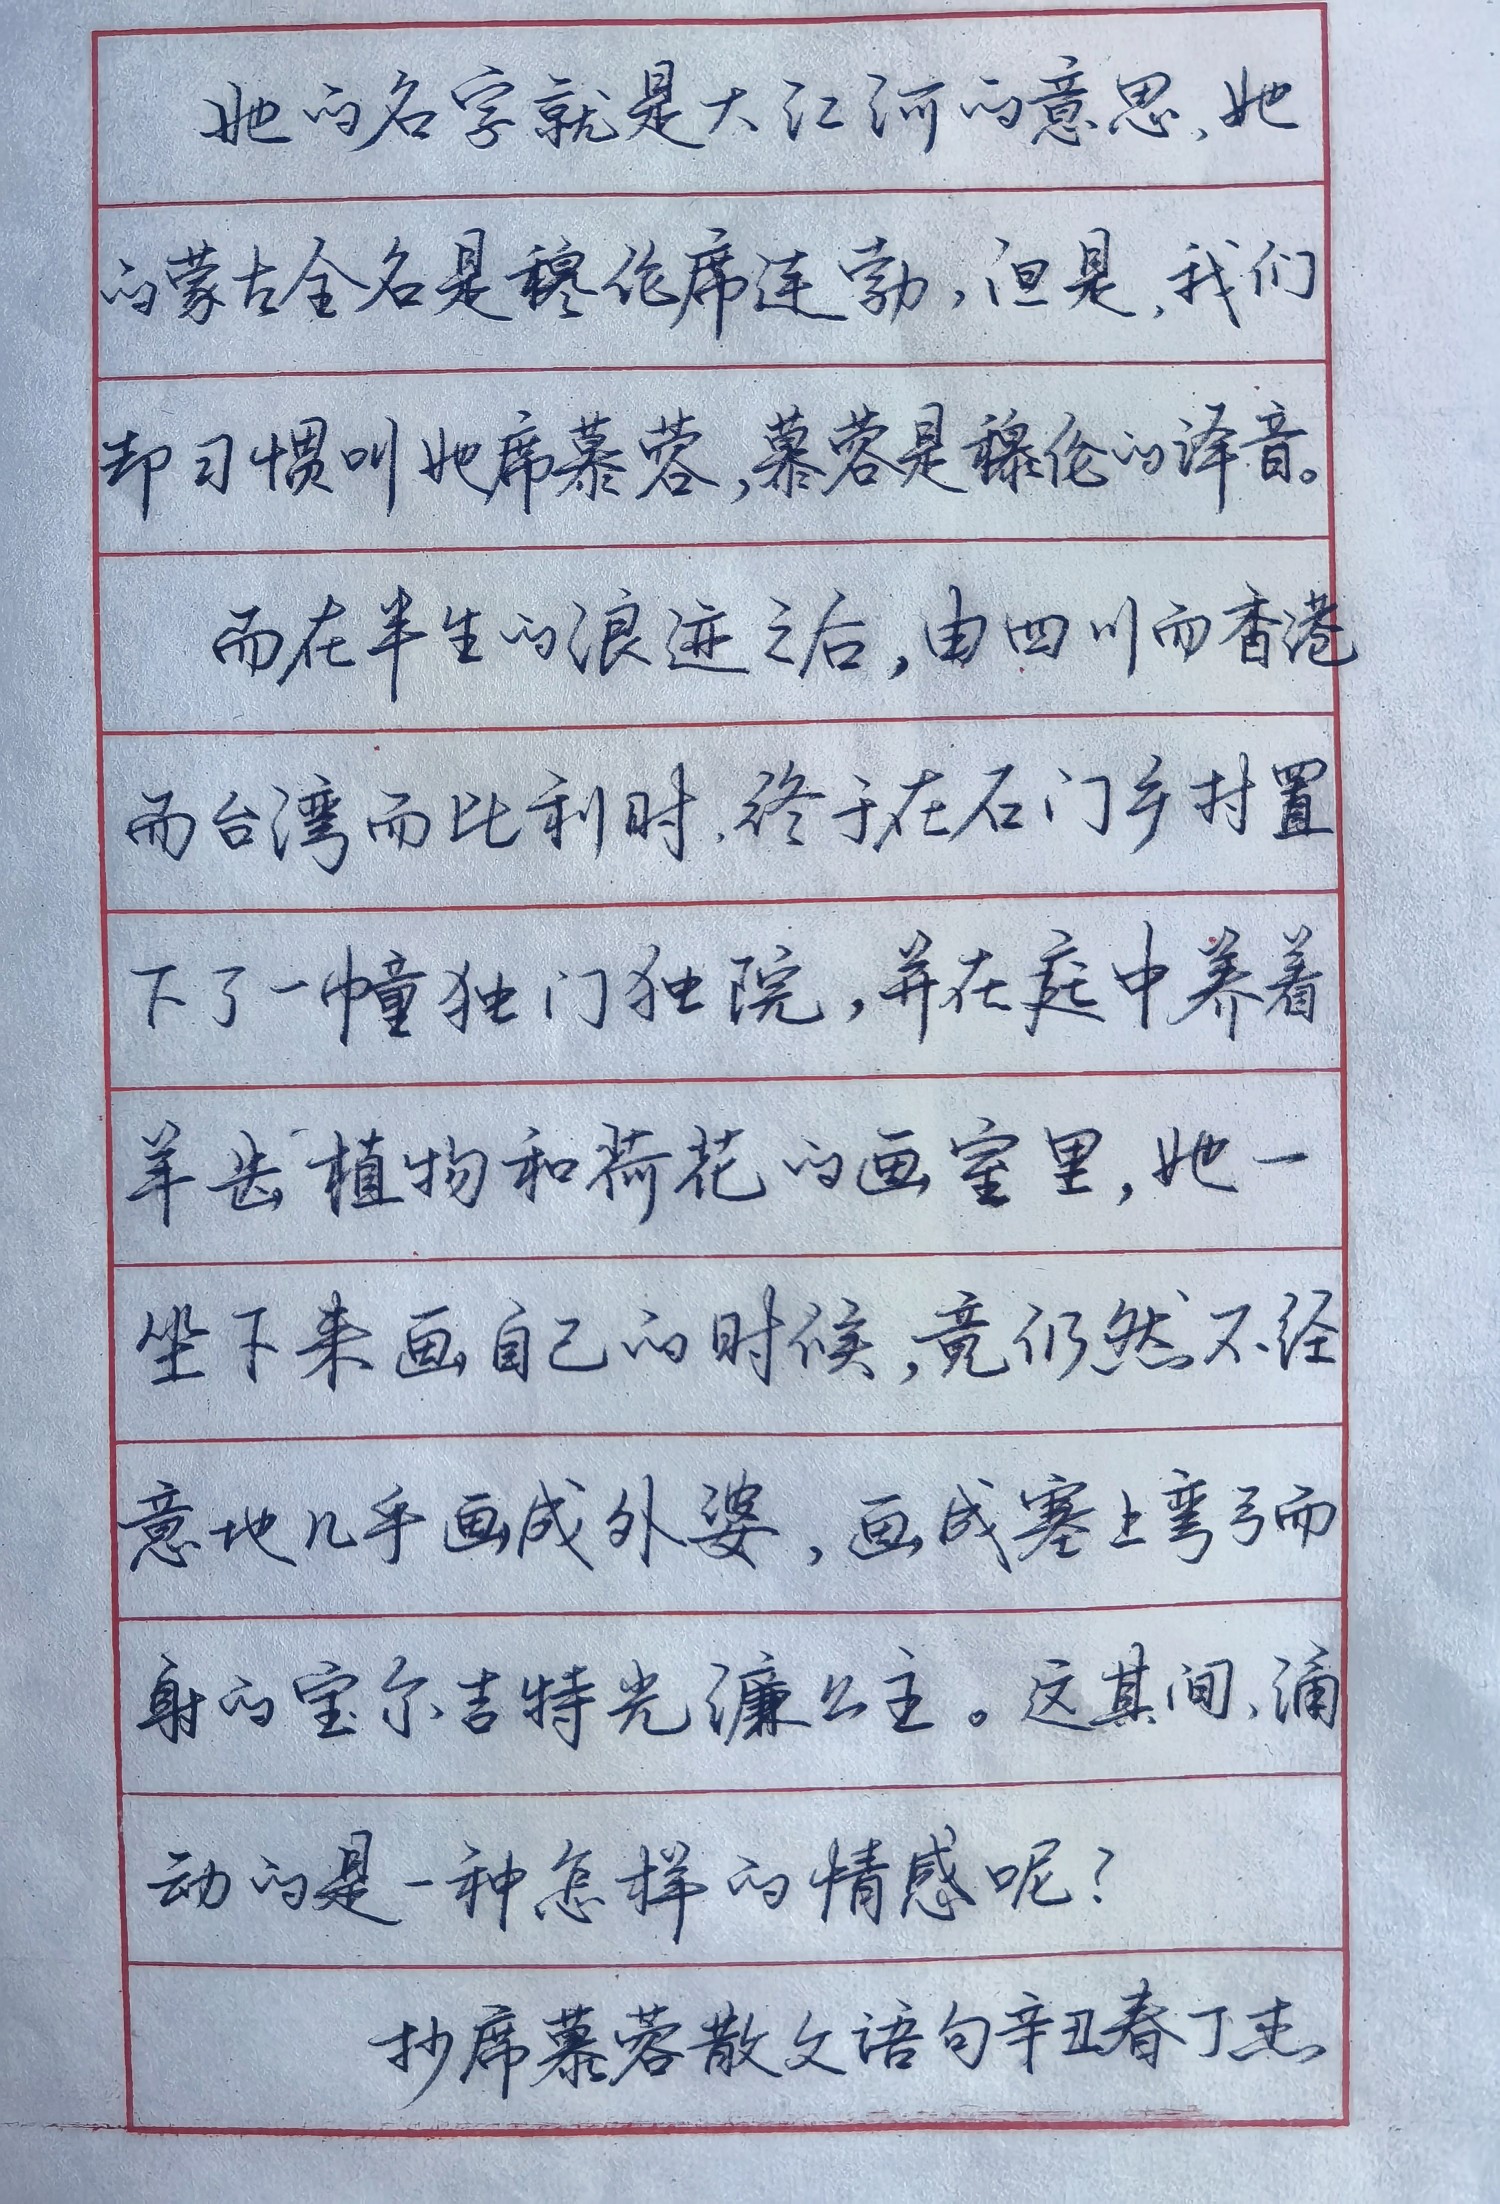 她的名字就是大江河的意思，她
的蒙古全名是穆伦席连勃，但是，我们
却习惯叫她席慕蓉，慕蓉是穆伦的译音。
而在半生的浪迹之后，由四川而香港
而台湾而比利时，终于在石门乡村置
下了一幢独门独院，并在庭中养着
羊齿植物和荷花的画室里，她一
坐下来画自己的时候，竟仍然不经
意地几乎画成外婆，画成塞上弯弓而
射的宝尔吉特光濂公主。这其间，涌
动的是一种怎样的情感呢？
抄席慕蓉散文语句辛丑春丁杰